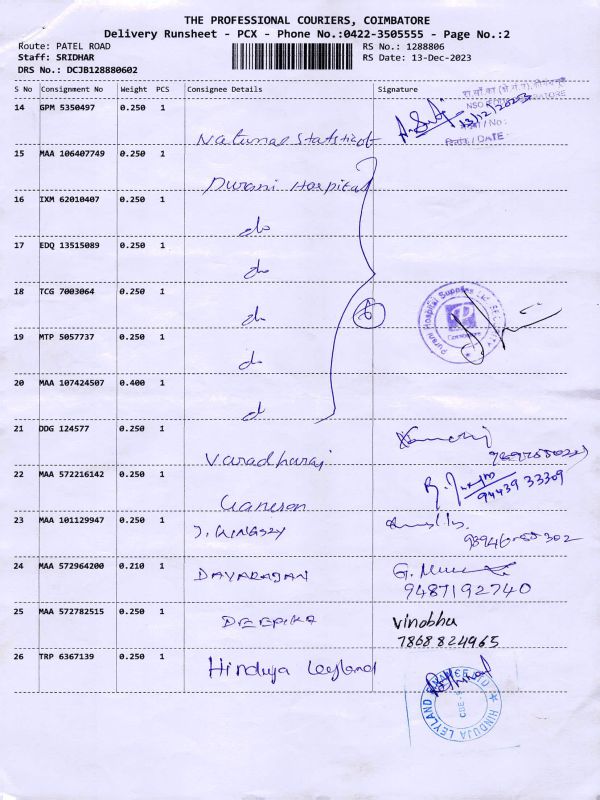 THE PROFESSIONAL COURIERS, COIMBATORE
Delivery Runsheet - PCX - Phone No.:0422-3505555 - Page No.:2
Route: PATEL ROAD
RS No.: 1288806
Staff: SRIDHAR
RS Date: 13-Dec-2023
DRS No.: DCJB128880602
S No Consignment No Weight PCS Consignee Details Signature
14 GPM 5350497 0.250 1
13/12/2023
DATE
15 MAA 106407749 0.250 1
Durani Hospital
16 IXM 62010407 0.250 1
do
17 EDQ 13515089 0.250 1
do
18 TCG 7003064 0.250 1
do
6
19 MTP 5057737 0.250 1
do
20 MAA 107424507 0.400 1
d
21 DDG 124577 0.250 1
Varadharaj
22 MAA 572216142 0.250 1
Ganeson
94439 33309
23 MAA 101129947 0.250 1
24 MAA 572964200 0.210 1
DAVARAJAN
9487192740
25 MAA 572782515 0.250 1
DEEPIKA
Vinobha
7868824965
26 TRP 6367139 0.250 1
Hinduja Leyland
HINDUJA LEYLAND FINANCE LTD